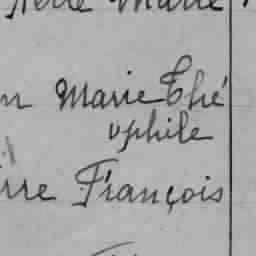 Marie
n Marie Thé
ophile
rre François